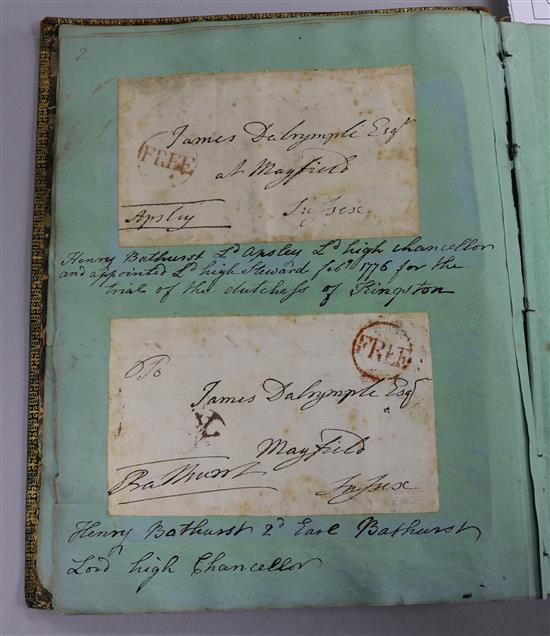 2
James Dalrymple Esqr
FREE
at Mayfield
Apsley
Sussex
Henry Bathurst Ld Apsley Ld high chancellor
and appointed Ld high Steward febry 1776 for the
trial of the dutchess of Kingston
FREE
To
James Dalrymple Esqr
Mayfield
Bathurst
Sussex
Henry Bathurst 2d Earl Bathurst
Lord high Chancellor